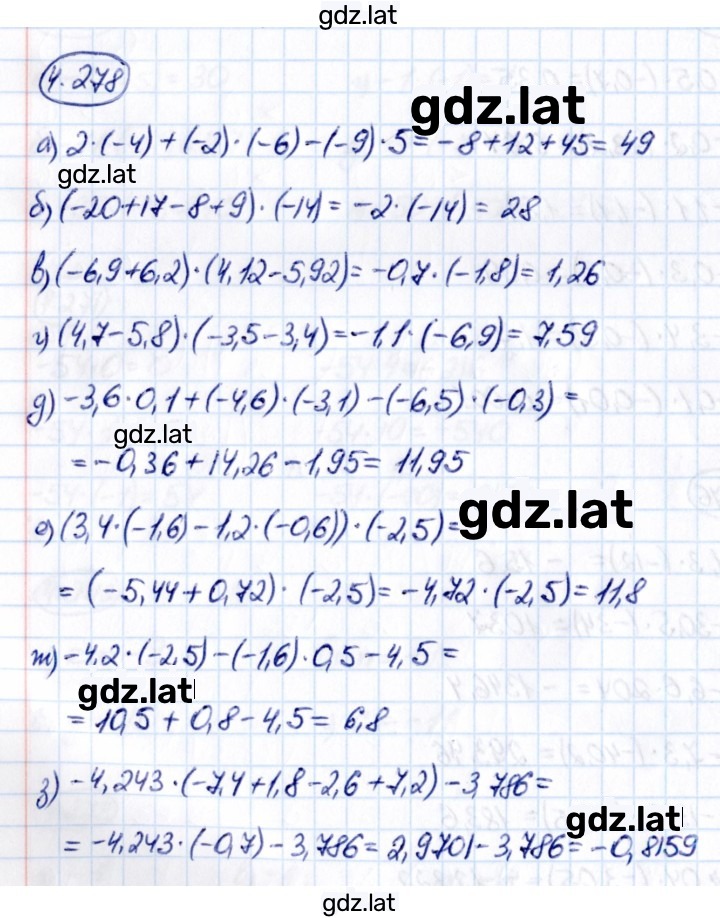 gdz.lat
4.278
gdz.lat
а) 2·(-4)+(-2)·(-6)-(-9)·5=-8+12+45=49
gdz.lat
б) (-20+17-8+9)·(-14)=-2·(-14)=28
в) (-6,9+6,2)·(4,12-5,92)=-0,7·(-1,8)=1,26
г) (4,7-5,8)·(-3,5-3,4)=-1,1·(-6,9)=7,59
д) -3,6·0,1+(-4,6)·(-3,1)-(-6,5)·(-0,3)=
gdz.lat
=-0,36+14,26-1,95=11,95
gdz.lat
е) (3,4·(-1,6)-1,2·(-0,6))·(-2,5)=
=(-5,44+0,72)·(-2,5)=-4,72·(-2,5)=11,8
ж) -4,2·(-2,5)-(-1,6)·0,5-4,5=
gdz.lat
=10,5+0,8-4,5=6,8
з) -4,243·(-7,4+1,8-2,6+7,2)-3,786=
gdz.lat
=-4,243·(-0,7)-3,786=2,9701-3,786=-0,8159
gdz.lat